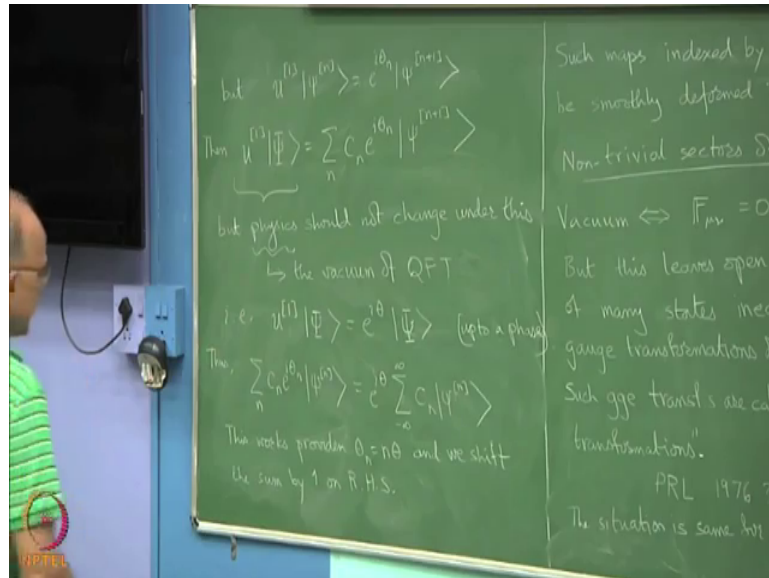 but U^[1] |Ψ^[n]⟩ = e^{iθ_n} |Ψ^[n+1]⟩
Then U^[1] |Ψ⟩ = Σ_n C_n e^{iθ_n} |Ψ^[n+1]⟩
but physics should not change under this
↳ the vacuum of QFT
i.e. U^[1] |Ψ⟩ = e^{iθ} |Ψ⟩ (upto a phase).
Thus, Σ_n C_n e^{iθ_n} |Ψ^[n]⟩ = e^{iθ} Σ_{-∞}^{∞} C_n |Ψ^[n]⟩
This works provided θ_n = nθ and we shift
the sum by 1 on R.H.S.
Such maps indexed by
be smoothly deformed
Non-trivial sectors
Vacuum ⇔ F_μν = 0
But this leaves open
of many states
gauge transformations
Such gge transf s are
transformations".
PRL 1976
The situation is same for
NPTEL